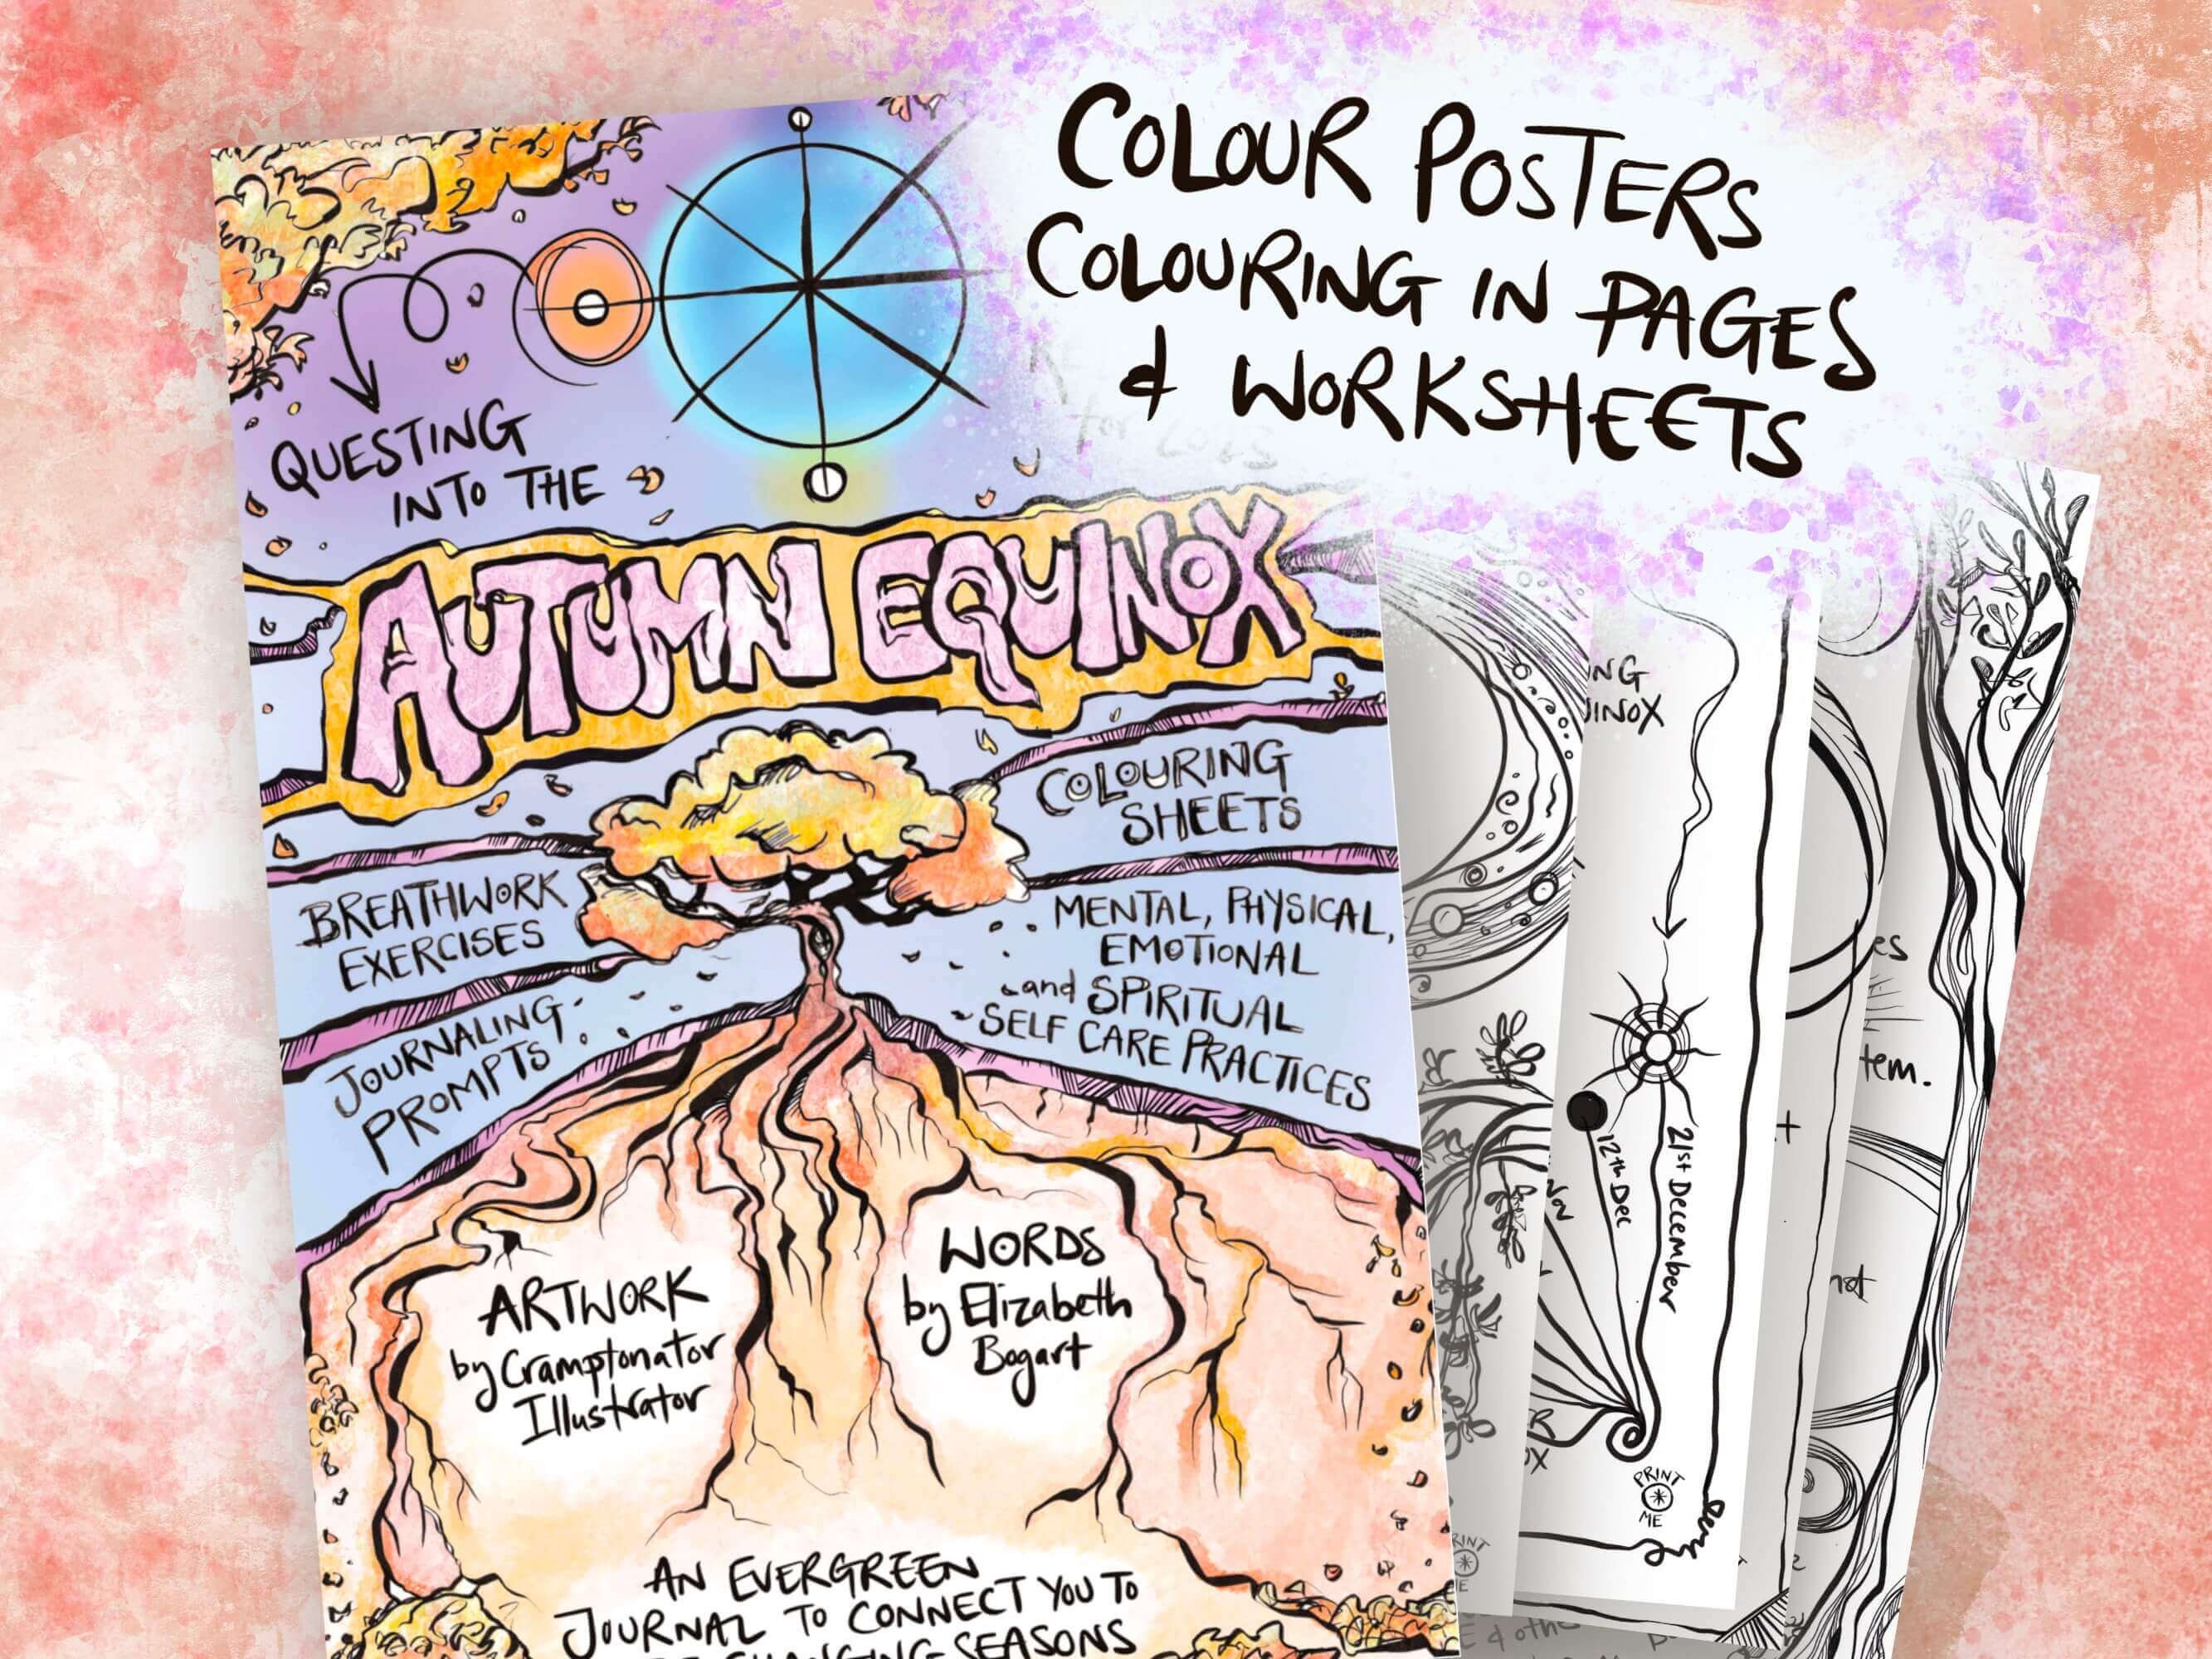 COLOUR POSTERS
COLOURING IN PAGES
& WORKSHEETS
QUESTING
INTO THE
AUTUMN EQUINOX
COLOURING
SHEETS
BREATHWORK
EXERCISES
MENTAL, PHYSICAL,
EMOTIONAL
and SPIRITUAL
SELF CARE PRACTICES
JOURNALING
PROMPTS
ARTWORK
by Cramptonator
Illustrator
WORDS
by Elizabeth
Bogart
AN EVERGREEN
JOURNAL TO CONNECT YOU TO
CHANGING SEASONS
12th Dec
21st December
PRINT
ME